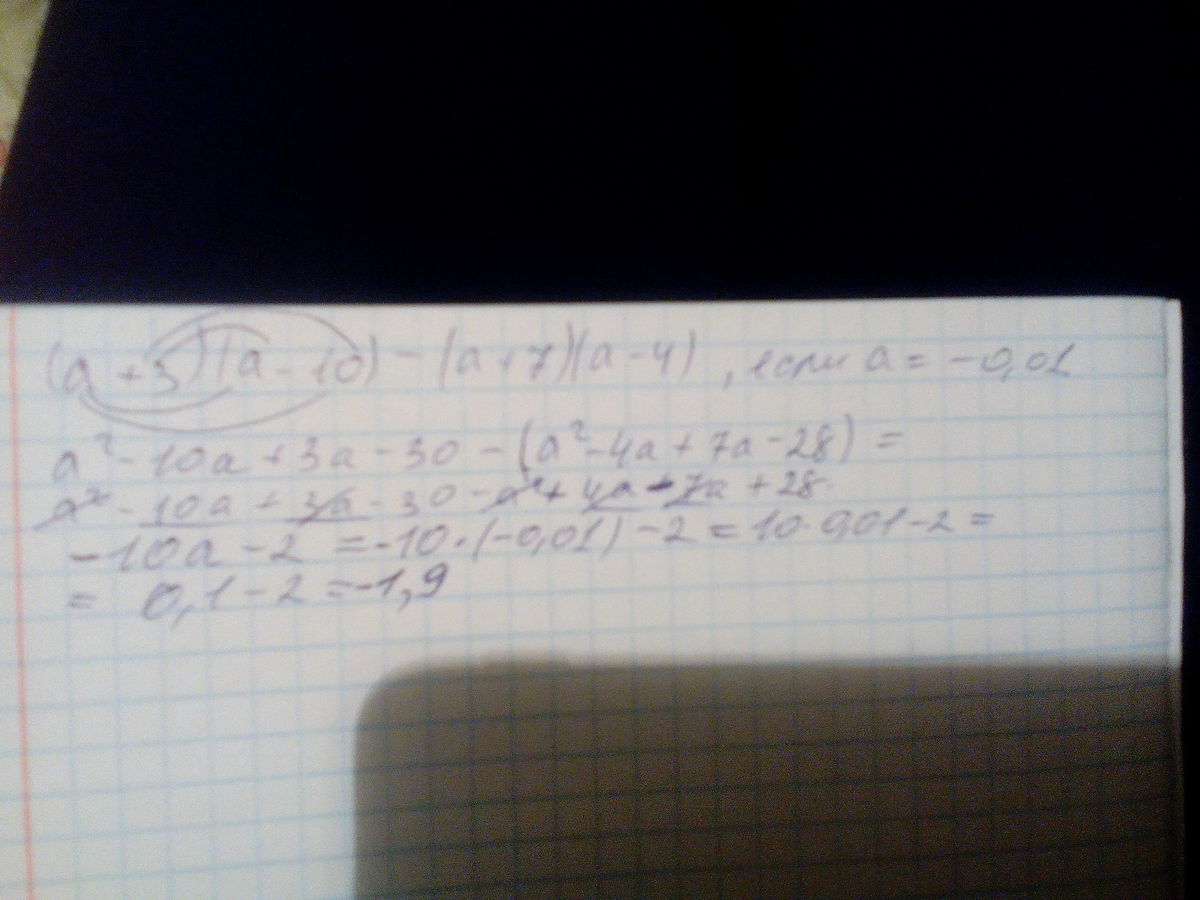 (a + 3)(a - 10) - (a + 7)(a - 4) , если a = -0,01
a² - 10a + 3a - 30 - (a² - 4a + 7a - 28) =
a² - 10a + 3a - 30 - a² + 4a - 7a + 28
-10a - 2 = -10·(-0,01) - 2 = 10·0,01 - 2 =
= 0,1 - 2 = -1,9